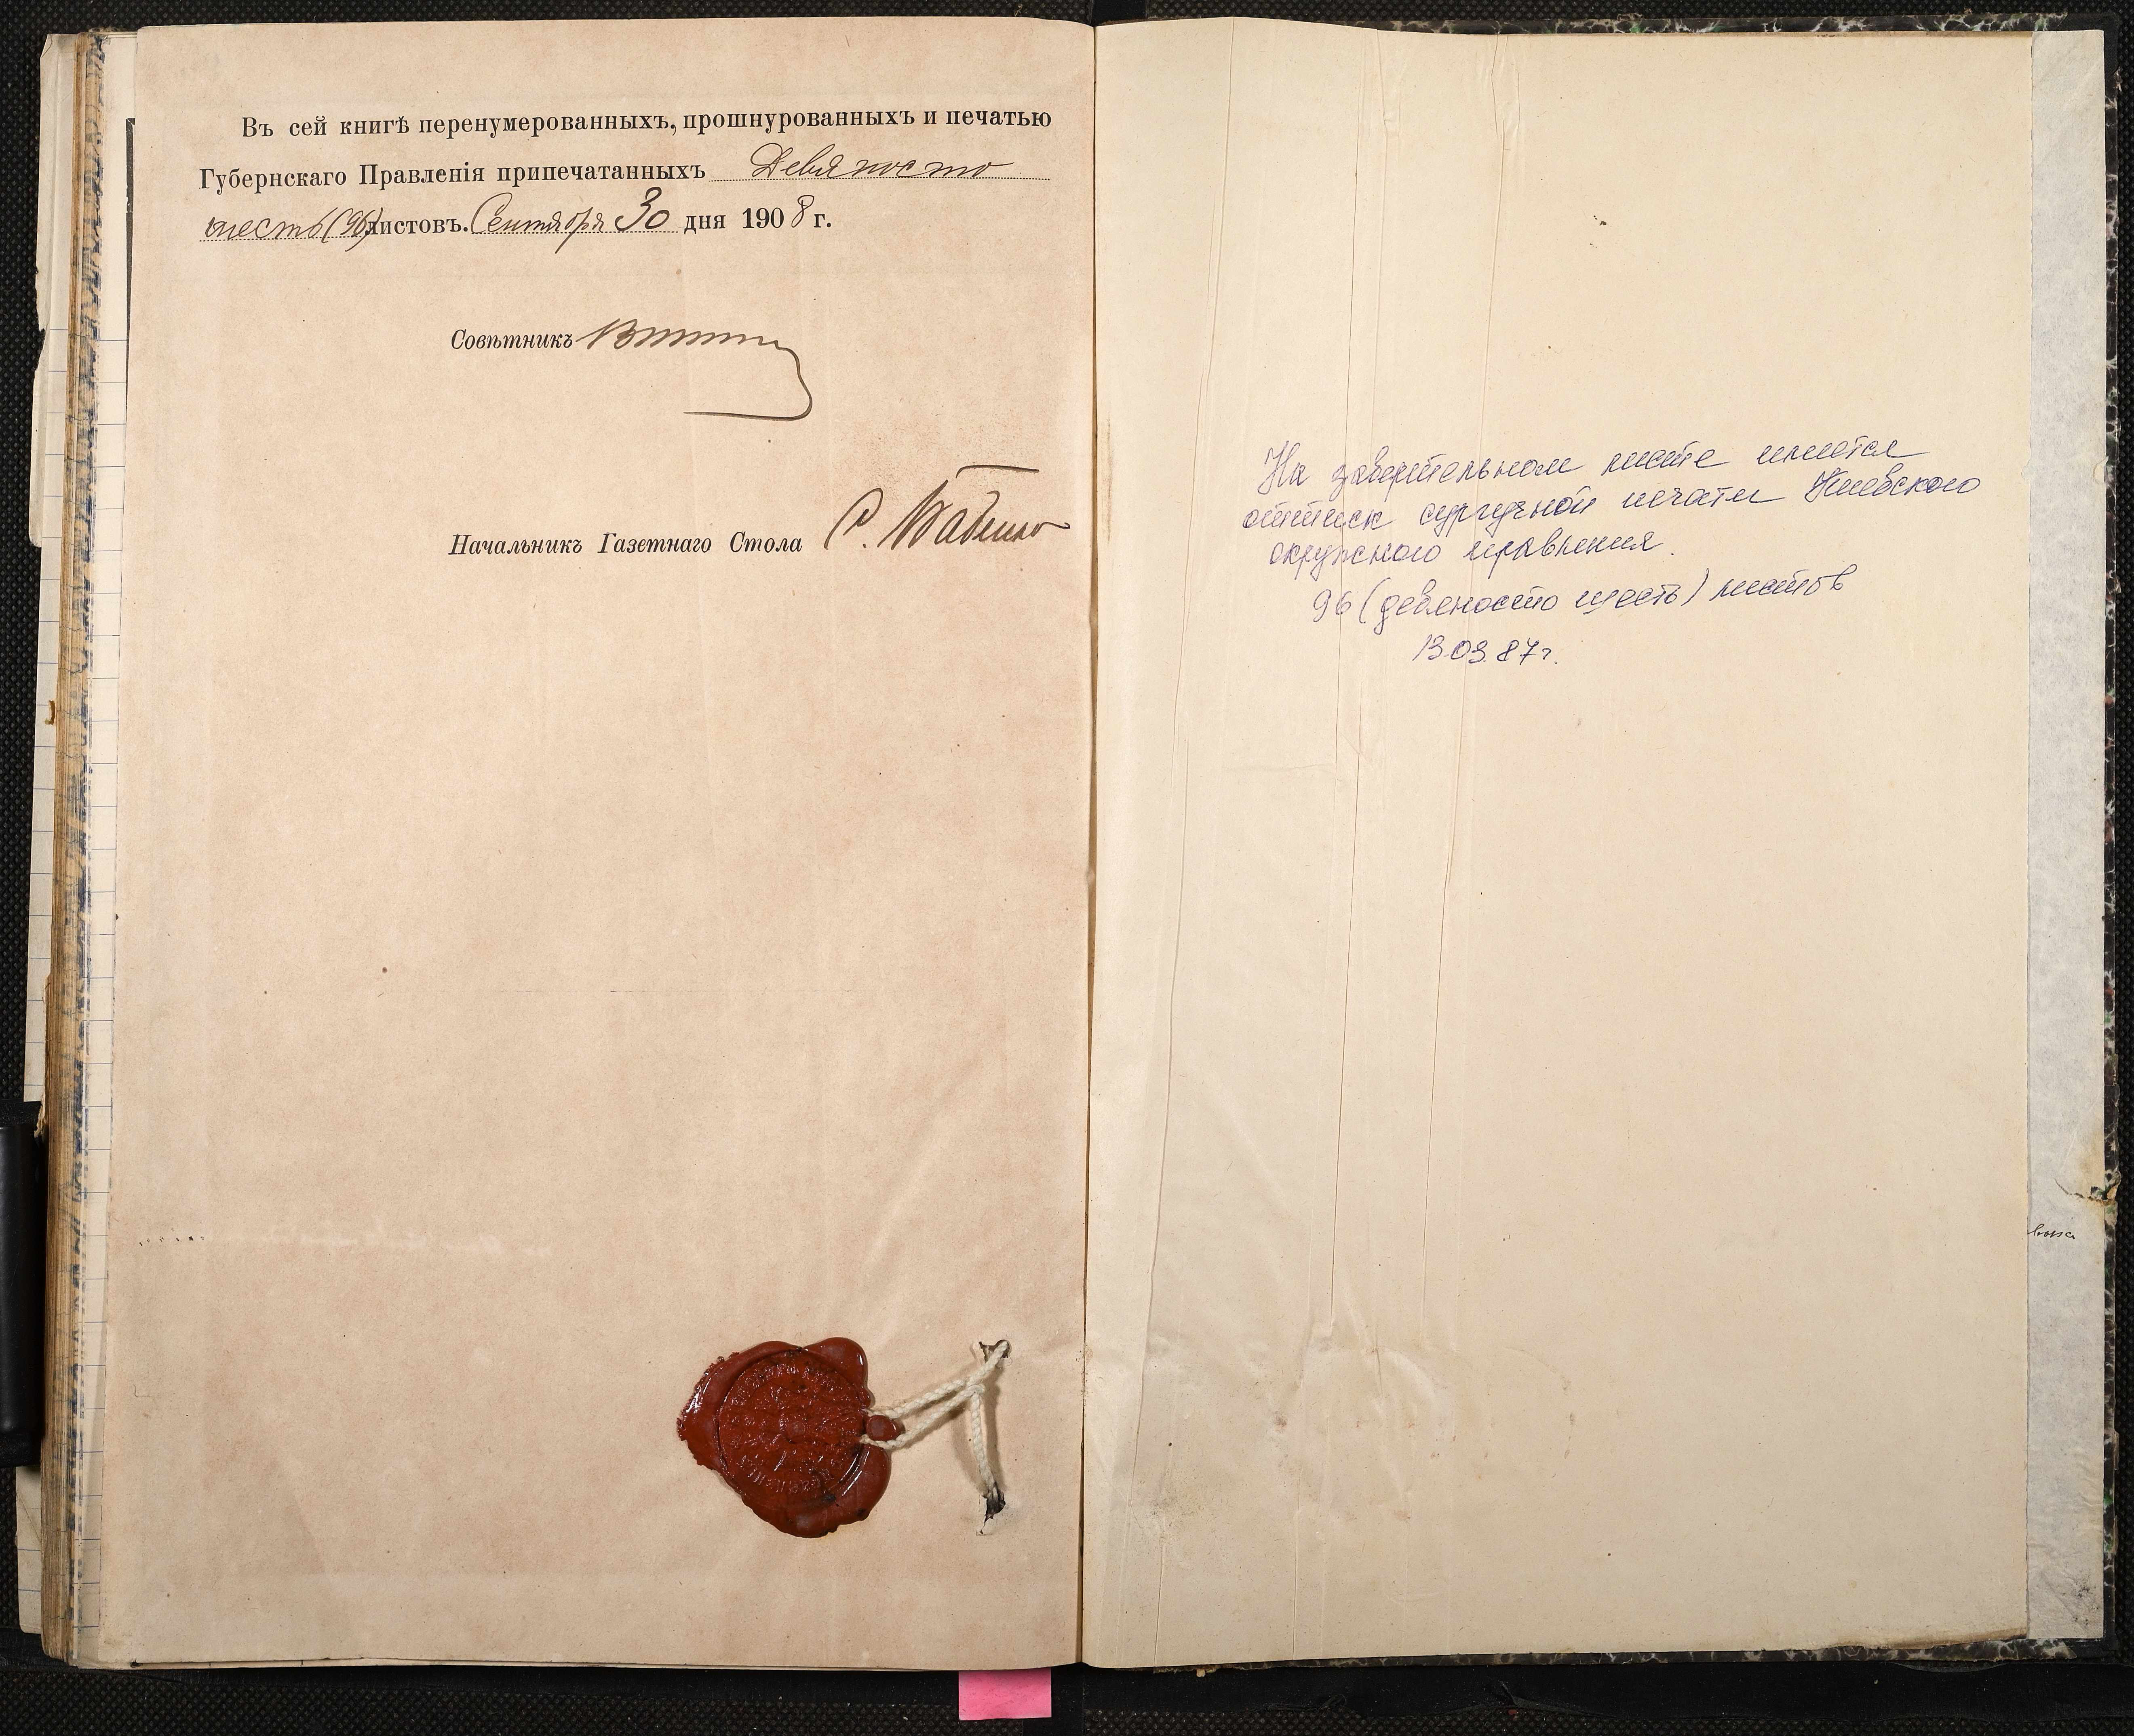 Въ сей книгѣ перенумерованныхъ, прошнурованныхъ и печатью
Губернскаго Правленія припечатанныхъ Девяносто
шесть (96) листовъ. Сентября 30 дня 1908 г.
Совѣтникъ
Начальникъ Газетнаго Стола С. Бабенко
На заверительном листе имеется
оттиск сургучной печати Киевского
окружного правления.
96 (девяносто шесть) листов
13.03.87г.